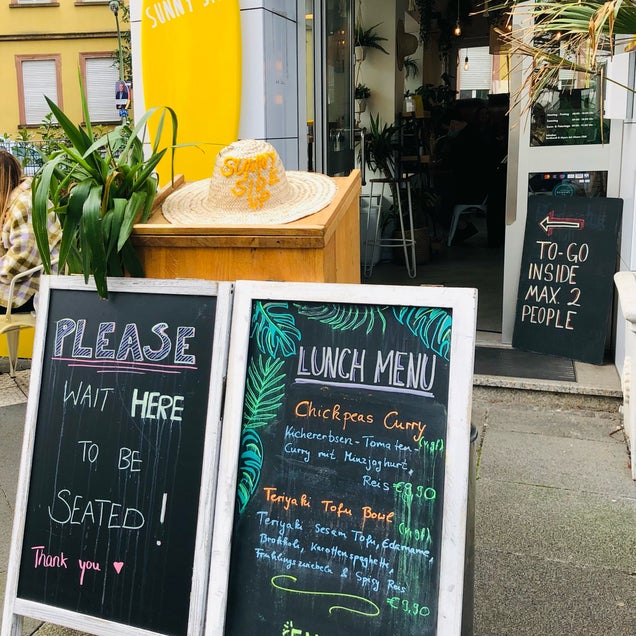 SUNNY SI
SUNNY
SIDE
UP
TO-GO
INSIDE
MAX 2
PEOPLE
PLEASE
WAIT HERE
TO BE
SEATED!
Thank you
LUNCH MENU
Chickpeas Curry
Kichererbsen-Tomaten-
Curry mit Minzjoghurt,
Reis €9,90
Teriyaki Tofu Bowl
Teriyaki Sesam Tofu, Edamame,
Brokkoli, Karottenspaghetti,
Frühlingszwiebeln & Spicy Reis
€9,90